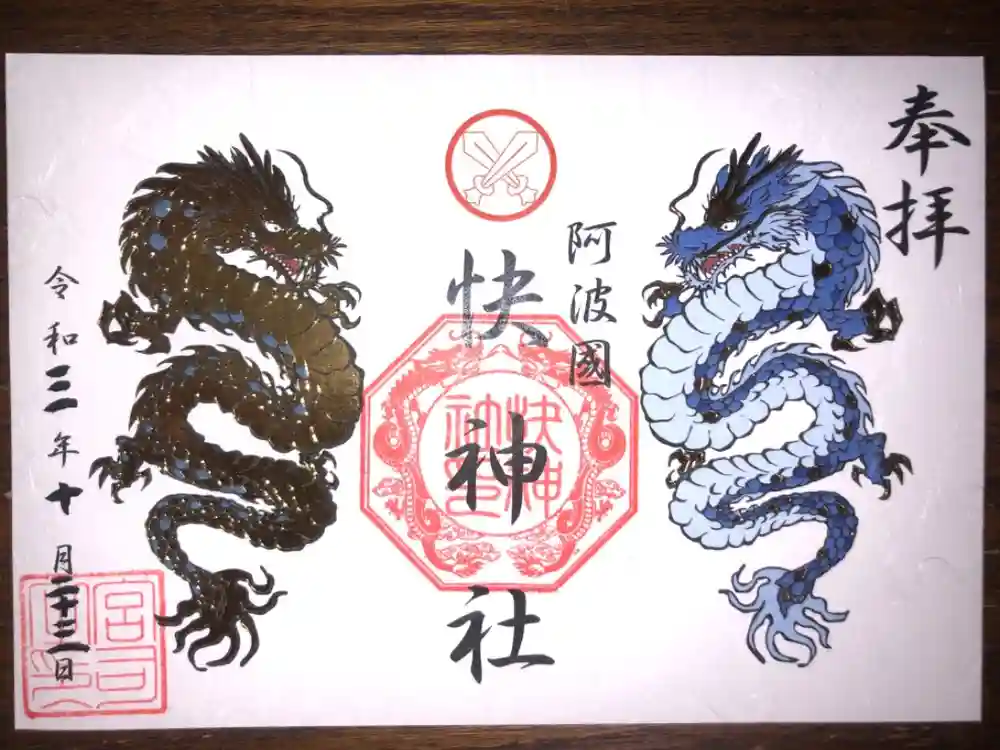 奉拝
阿波國
快神社
快神
社印
令和三年十月二十三日
宮司